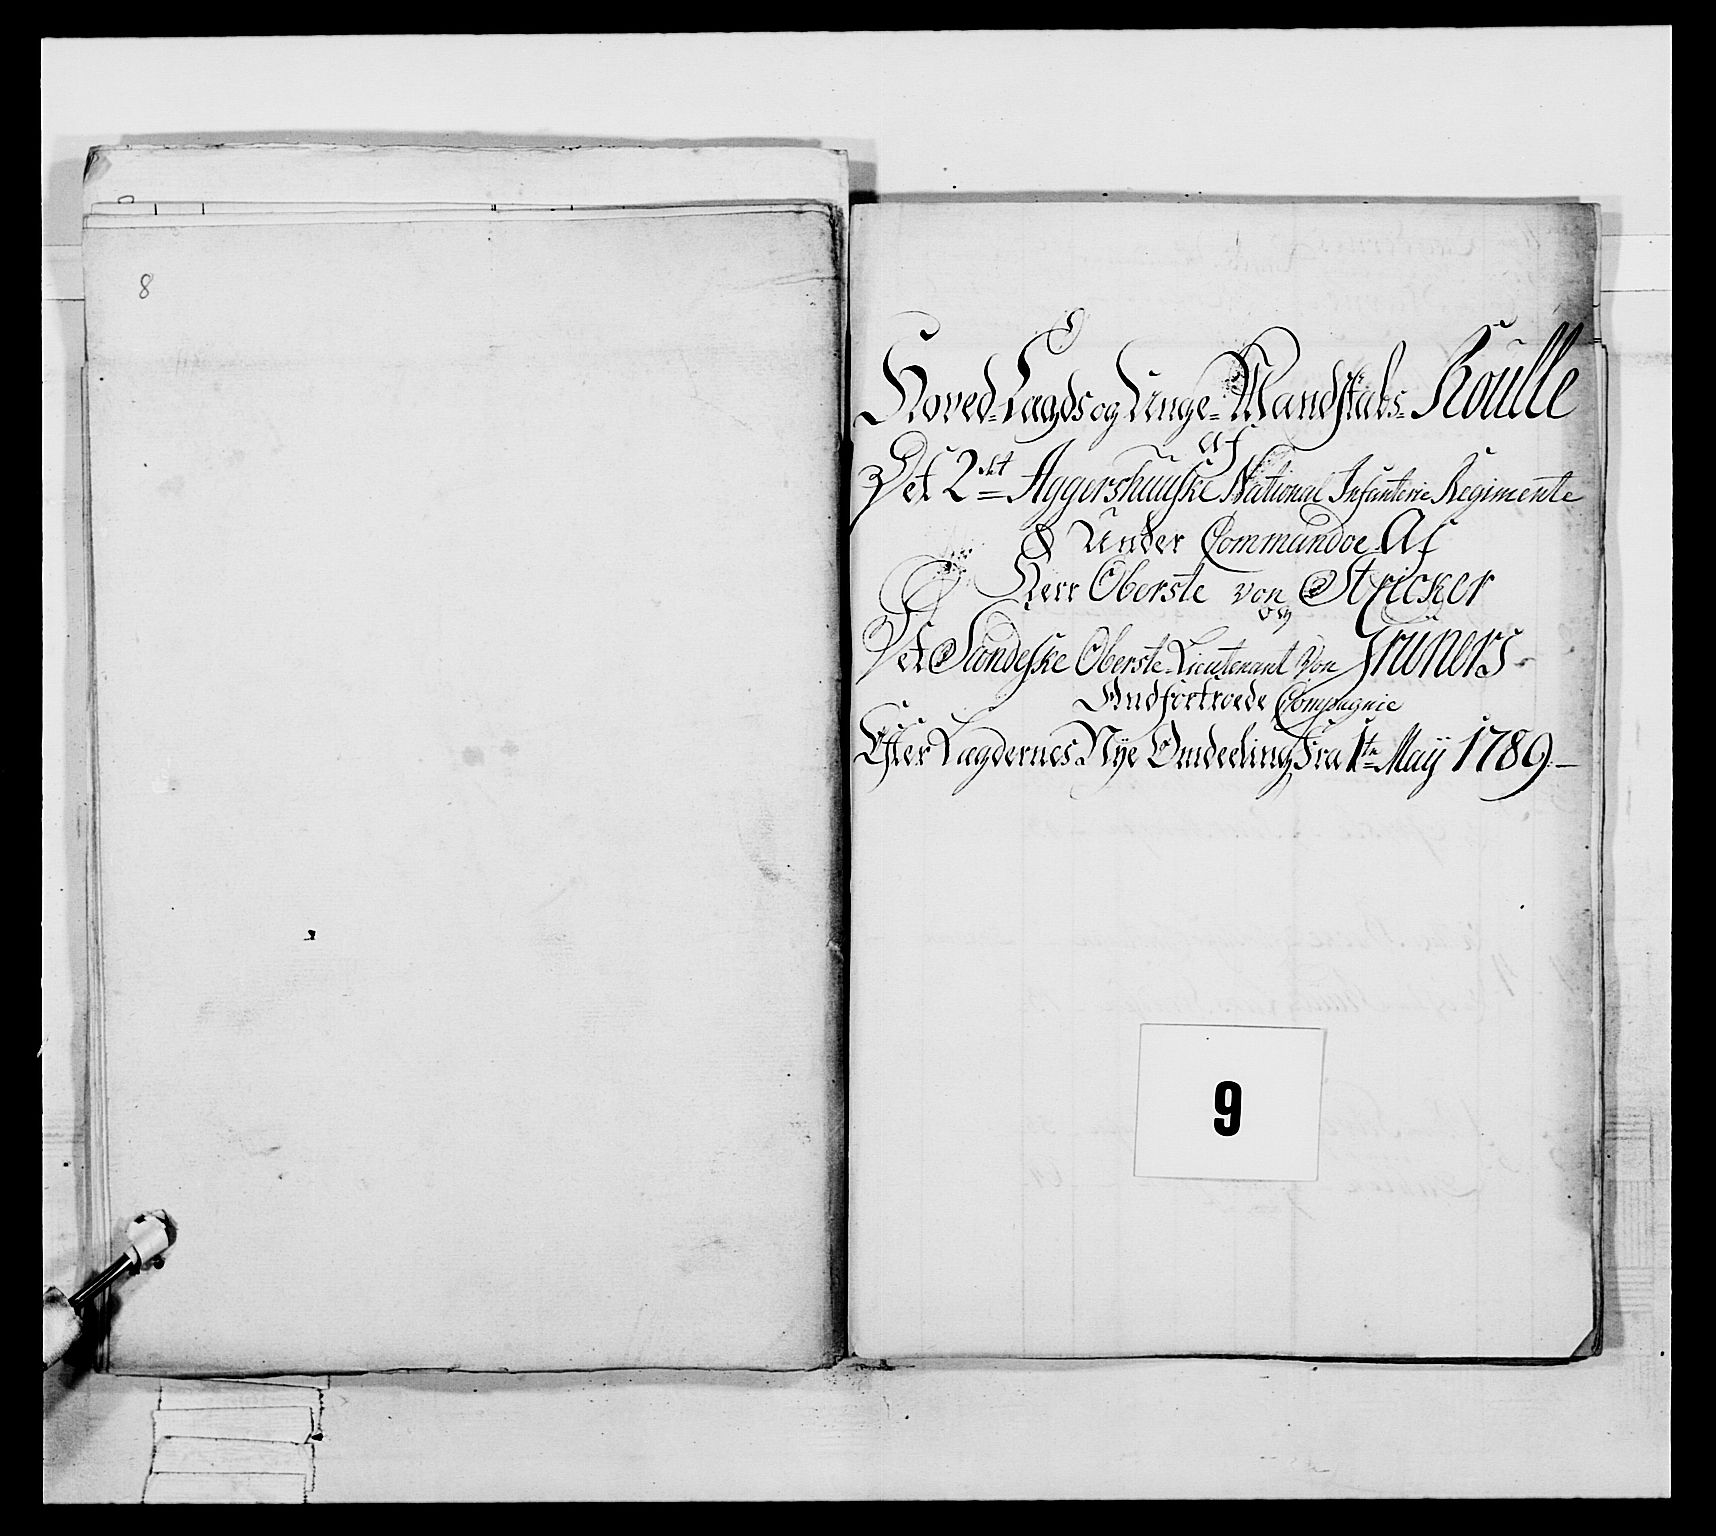 8
Hoved-Lægds og Unge-Mandskabs-Roulle
af
Det 2det Aggershuuske National Infanterie Regimente
Under Commandoe Af
Herr Oberste von Stricker
og
Det Oberste-Lieutenant von Grüners
Andfortroede Compagnie
Efter Lægdernes Nÿe Omdeeling Fra 1te Maÿ 1789
9